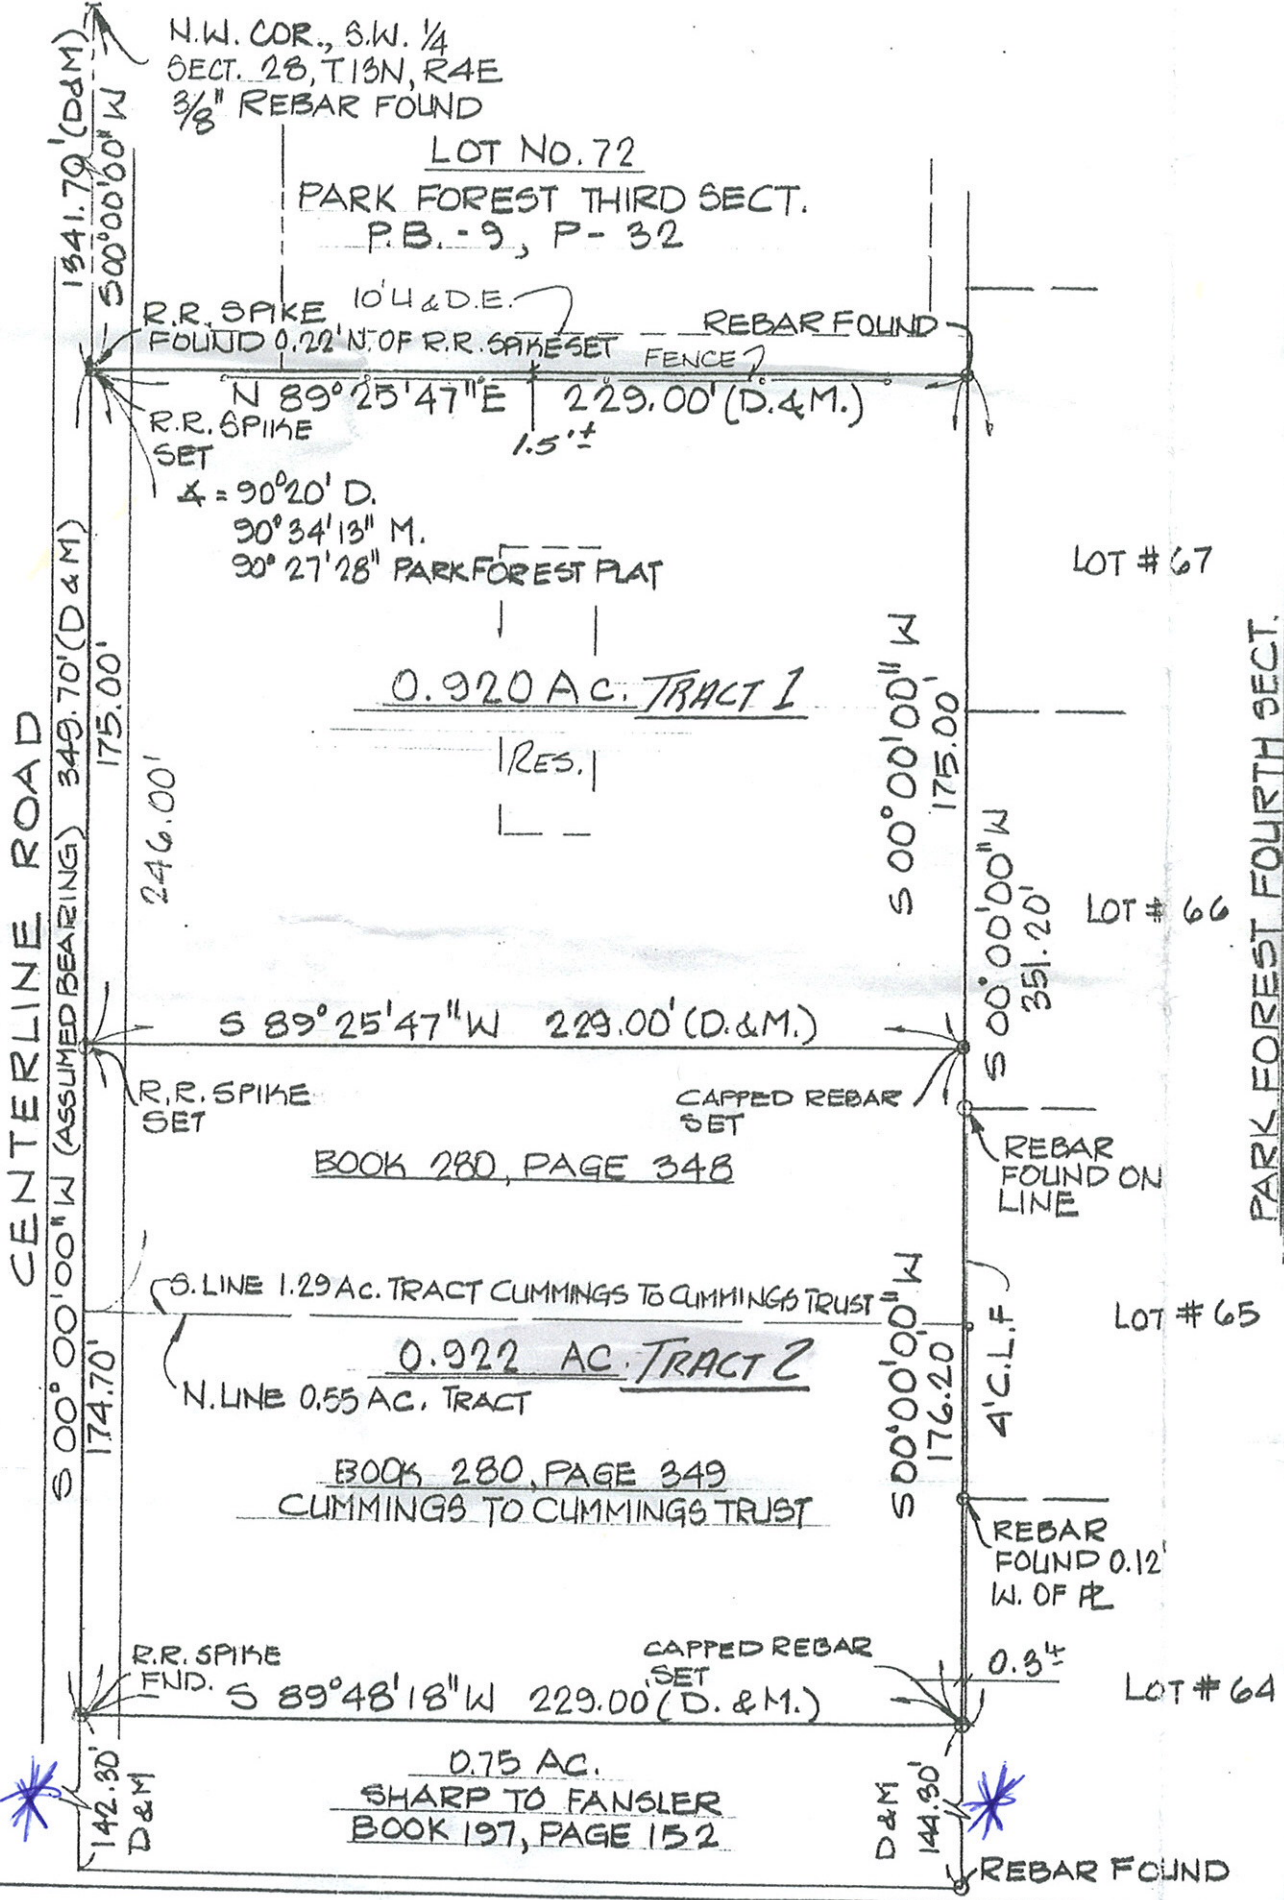 N.W. COR., S.W. 1/4
SECT. 28, T13N, R4E
3/8" REBAR FOUND
1341.70' (D&M)
S 00°00'00" W
LOT NO. 72
PARK FOREST THIRD SECT.
P.B. - 9, P - 32
R.R. SPIKE
FOUND 0.22' N. OF R.R. SPIKE SET
10' U & D.E.
REBAR FOUND
FENCE
N 89°25'47" E 229.00' (D.&M.)
1.5'±
R.R. SPIKE
SET
∡ = 90°20' D.
90°34'13" M.
90°27'28" PARK FOREST PLAT
LOT # 67
0.920 AC. TRACT 1
RES.
CENTERLINE ROAD
S 00°00'00" W (ASSUMED BEARING) 349.70' (D & M)
175.00'
246.00'
S 00°00'00" W
175.00'
S 00°00'00" W
351.20'
LOT # 66
PARK FOREST FOURTH SECT.
S 89°25'47" W 229.00' (D.&M.)
R.R. SPIKE
SET
CAPPED REBAR
SET
REBAR
FOUND ON
LINE
BOOK 280, PAGE 348
S. LINE 1.29 AC. TRACT CUMMINGS TO CUMMINGS TRUST
0.922 AC. TRACT 2
N. LINE 0.55 AC. TRACT
174.70'
S 00°00'00" W
176.20'
4' C.L.F.
LOT # 65
BOOK 280, PAGE 349
CUMMINGS TO CUMMINGS TRUST
REBAR
FOUND 0.12'
W. OF PL
R.R. SPIKE
FND.
CAPPED REBAR
SET
0.3'±
S 89°48'18" W 229.00' (D. & M.)
LOT # 64
142.30'
D&M
0.75 AC.
SHARP TO FANSLER
BOOK 197, PAGE 152
D&M
144.30'
REBAR FOUND